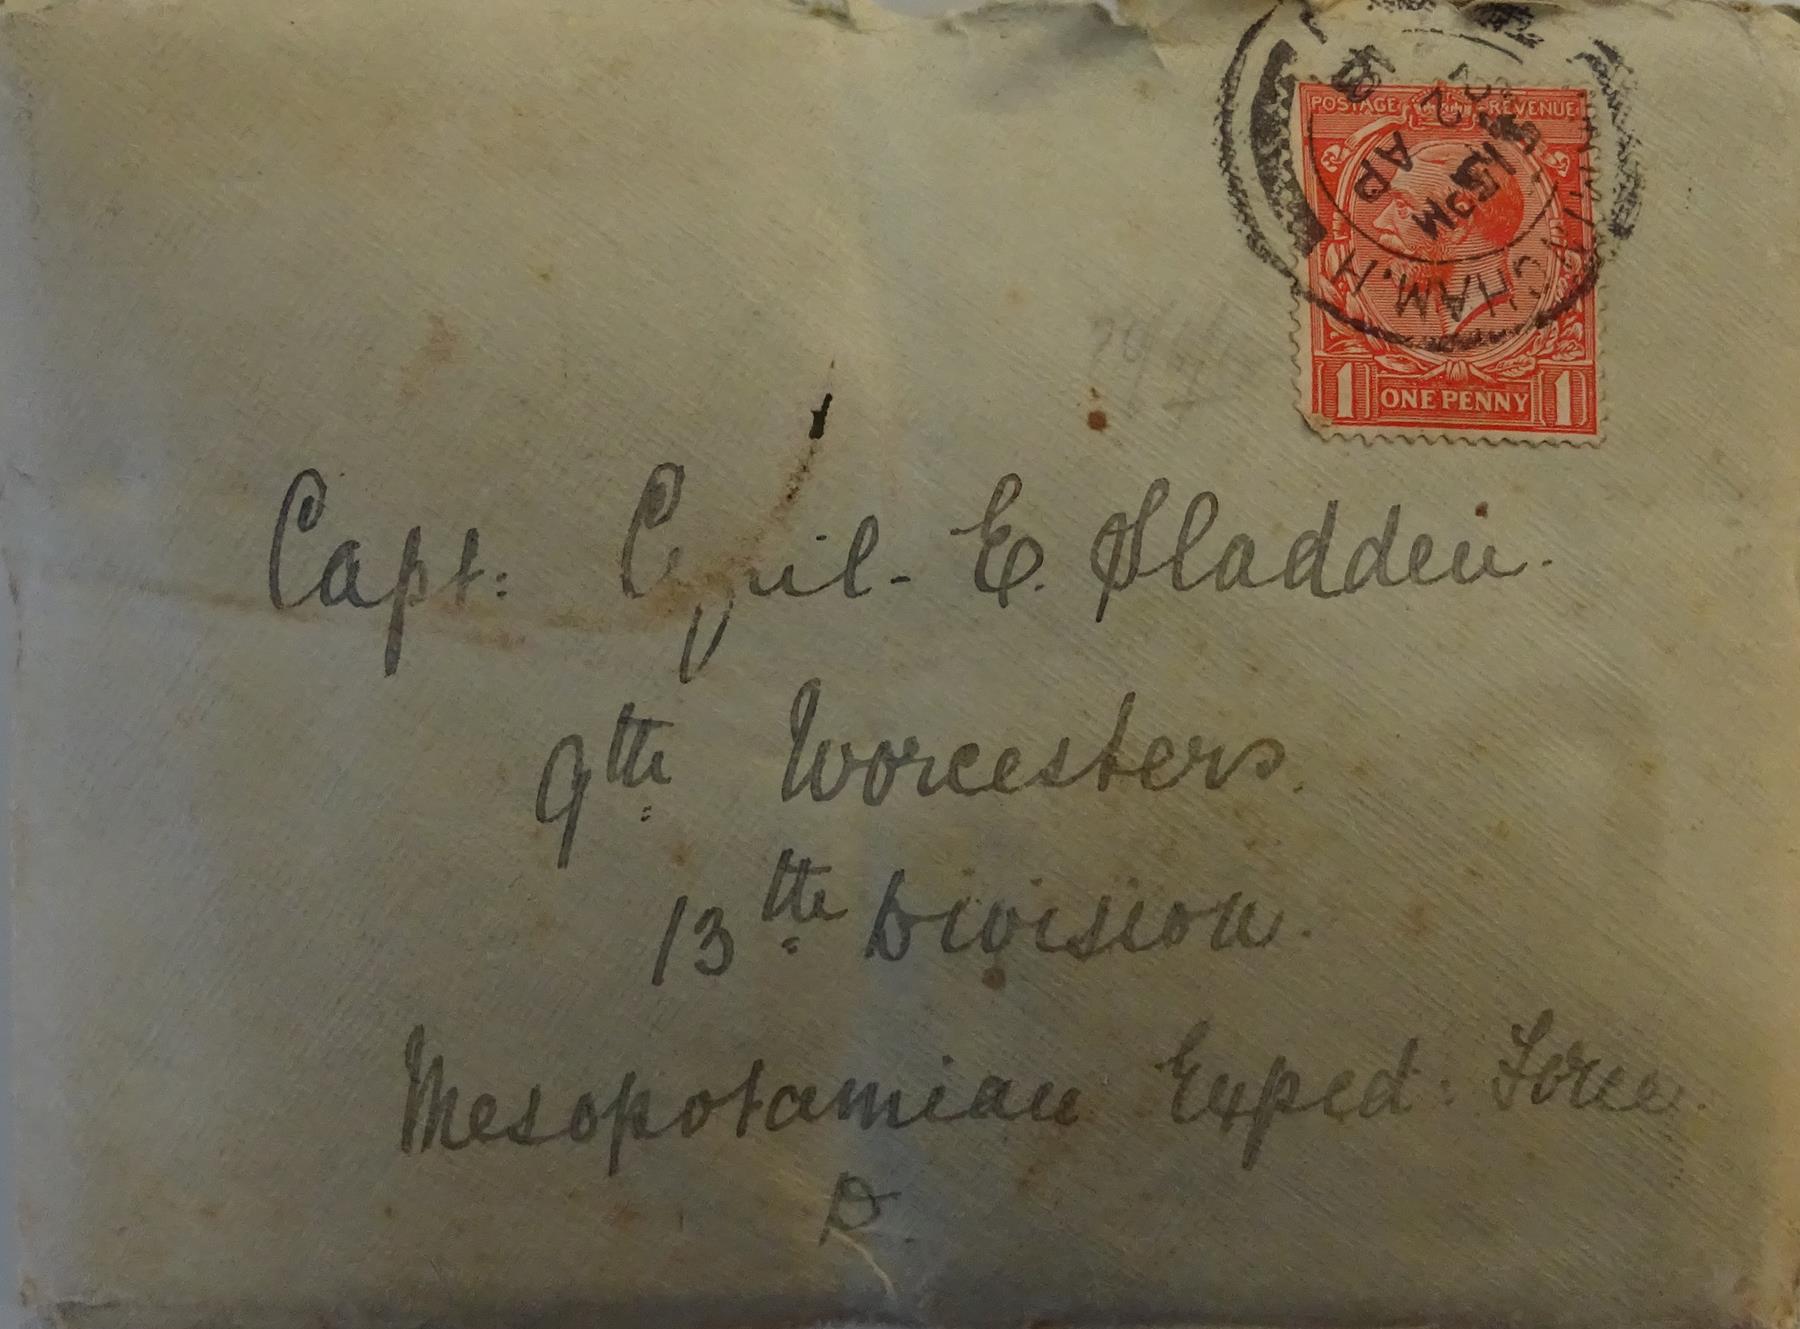 POSTAGE REVENUE
HAM.H
15 PM
AP 2
18
1 ONE PENNY 1
Capt: Cyril- E. Sladden.
9th Worcesters.
13th Division.
Mesopotamian Exped: Force.